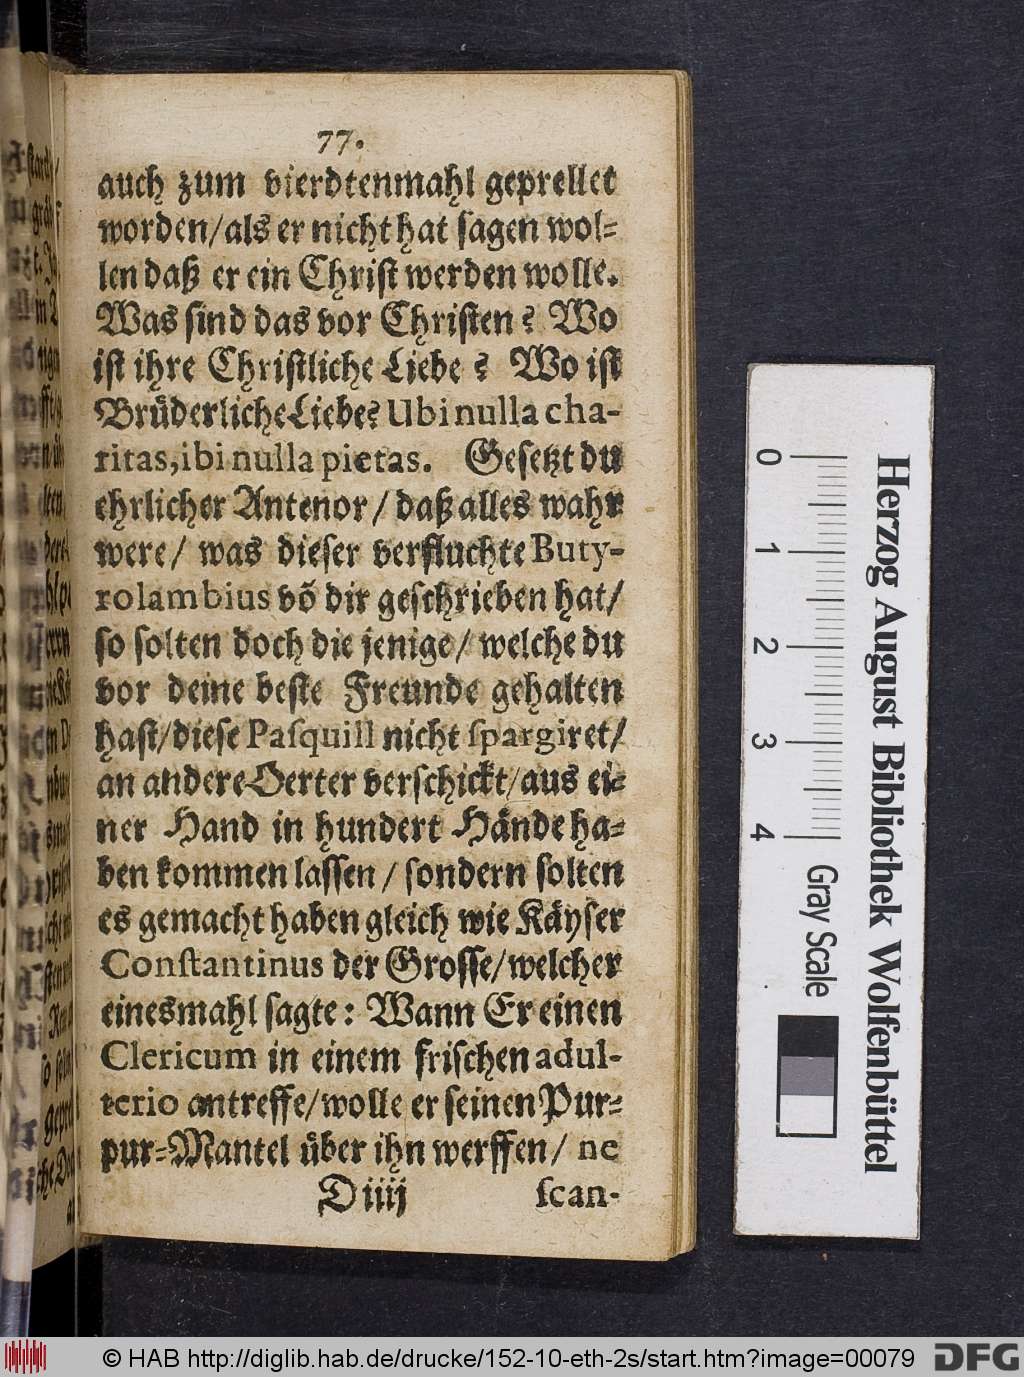 77.
auch zum vierdtenmahl geprellet
worden/als er nicht hat sagen wol=
len daß er ein Christ werden wolle.
Was sind das vor Christen? Wo
ist ihre Christliche Liebe? Wo ist
Brüderliche Liebe? Ubi nulla cha-
ritas, ibi nulla pietas. Gesetzt du
ehrlicher Antenor/ daß alles wahr
were/ was dieser verfluchte Buty-
rolambius võ dir geschrieben hat/
so solten doch die jenige/ welche du
vor deine beste Freunde gehalten
hast/diese Pasquill nicht spargiret/
an andere Oerter verschickt/aus ei=
ner Hand in hundert Hände ha=
ben kommen lassen/ sondern solten
es gemacht haben gleich wie Käyser
Constantinus der Grosse/welcher
einesmahl sagte: Wann Er einen
Clericum in einem frischen adul-
terio antreffe/wolle er seinen Pur=
pur=Mantel über ihn werffen/ ne
D iiij scan-
0 1 2 3 4
Gray Scale
Herzog August Bibliothek Wolfenbüttel
© HAB http://diglib.hab.de/drucke/152-10-eth-2s/start.htm?image=00079
DFG